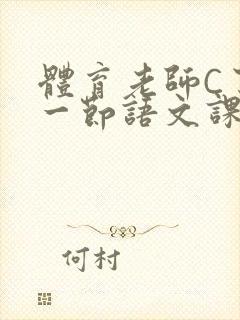 體育老師C
一節語文課
何村